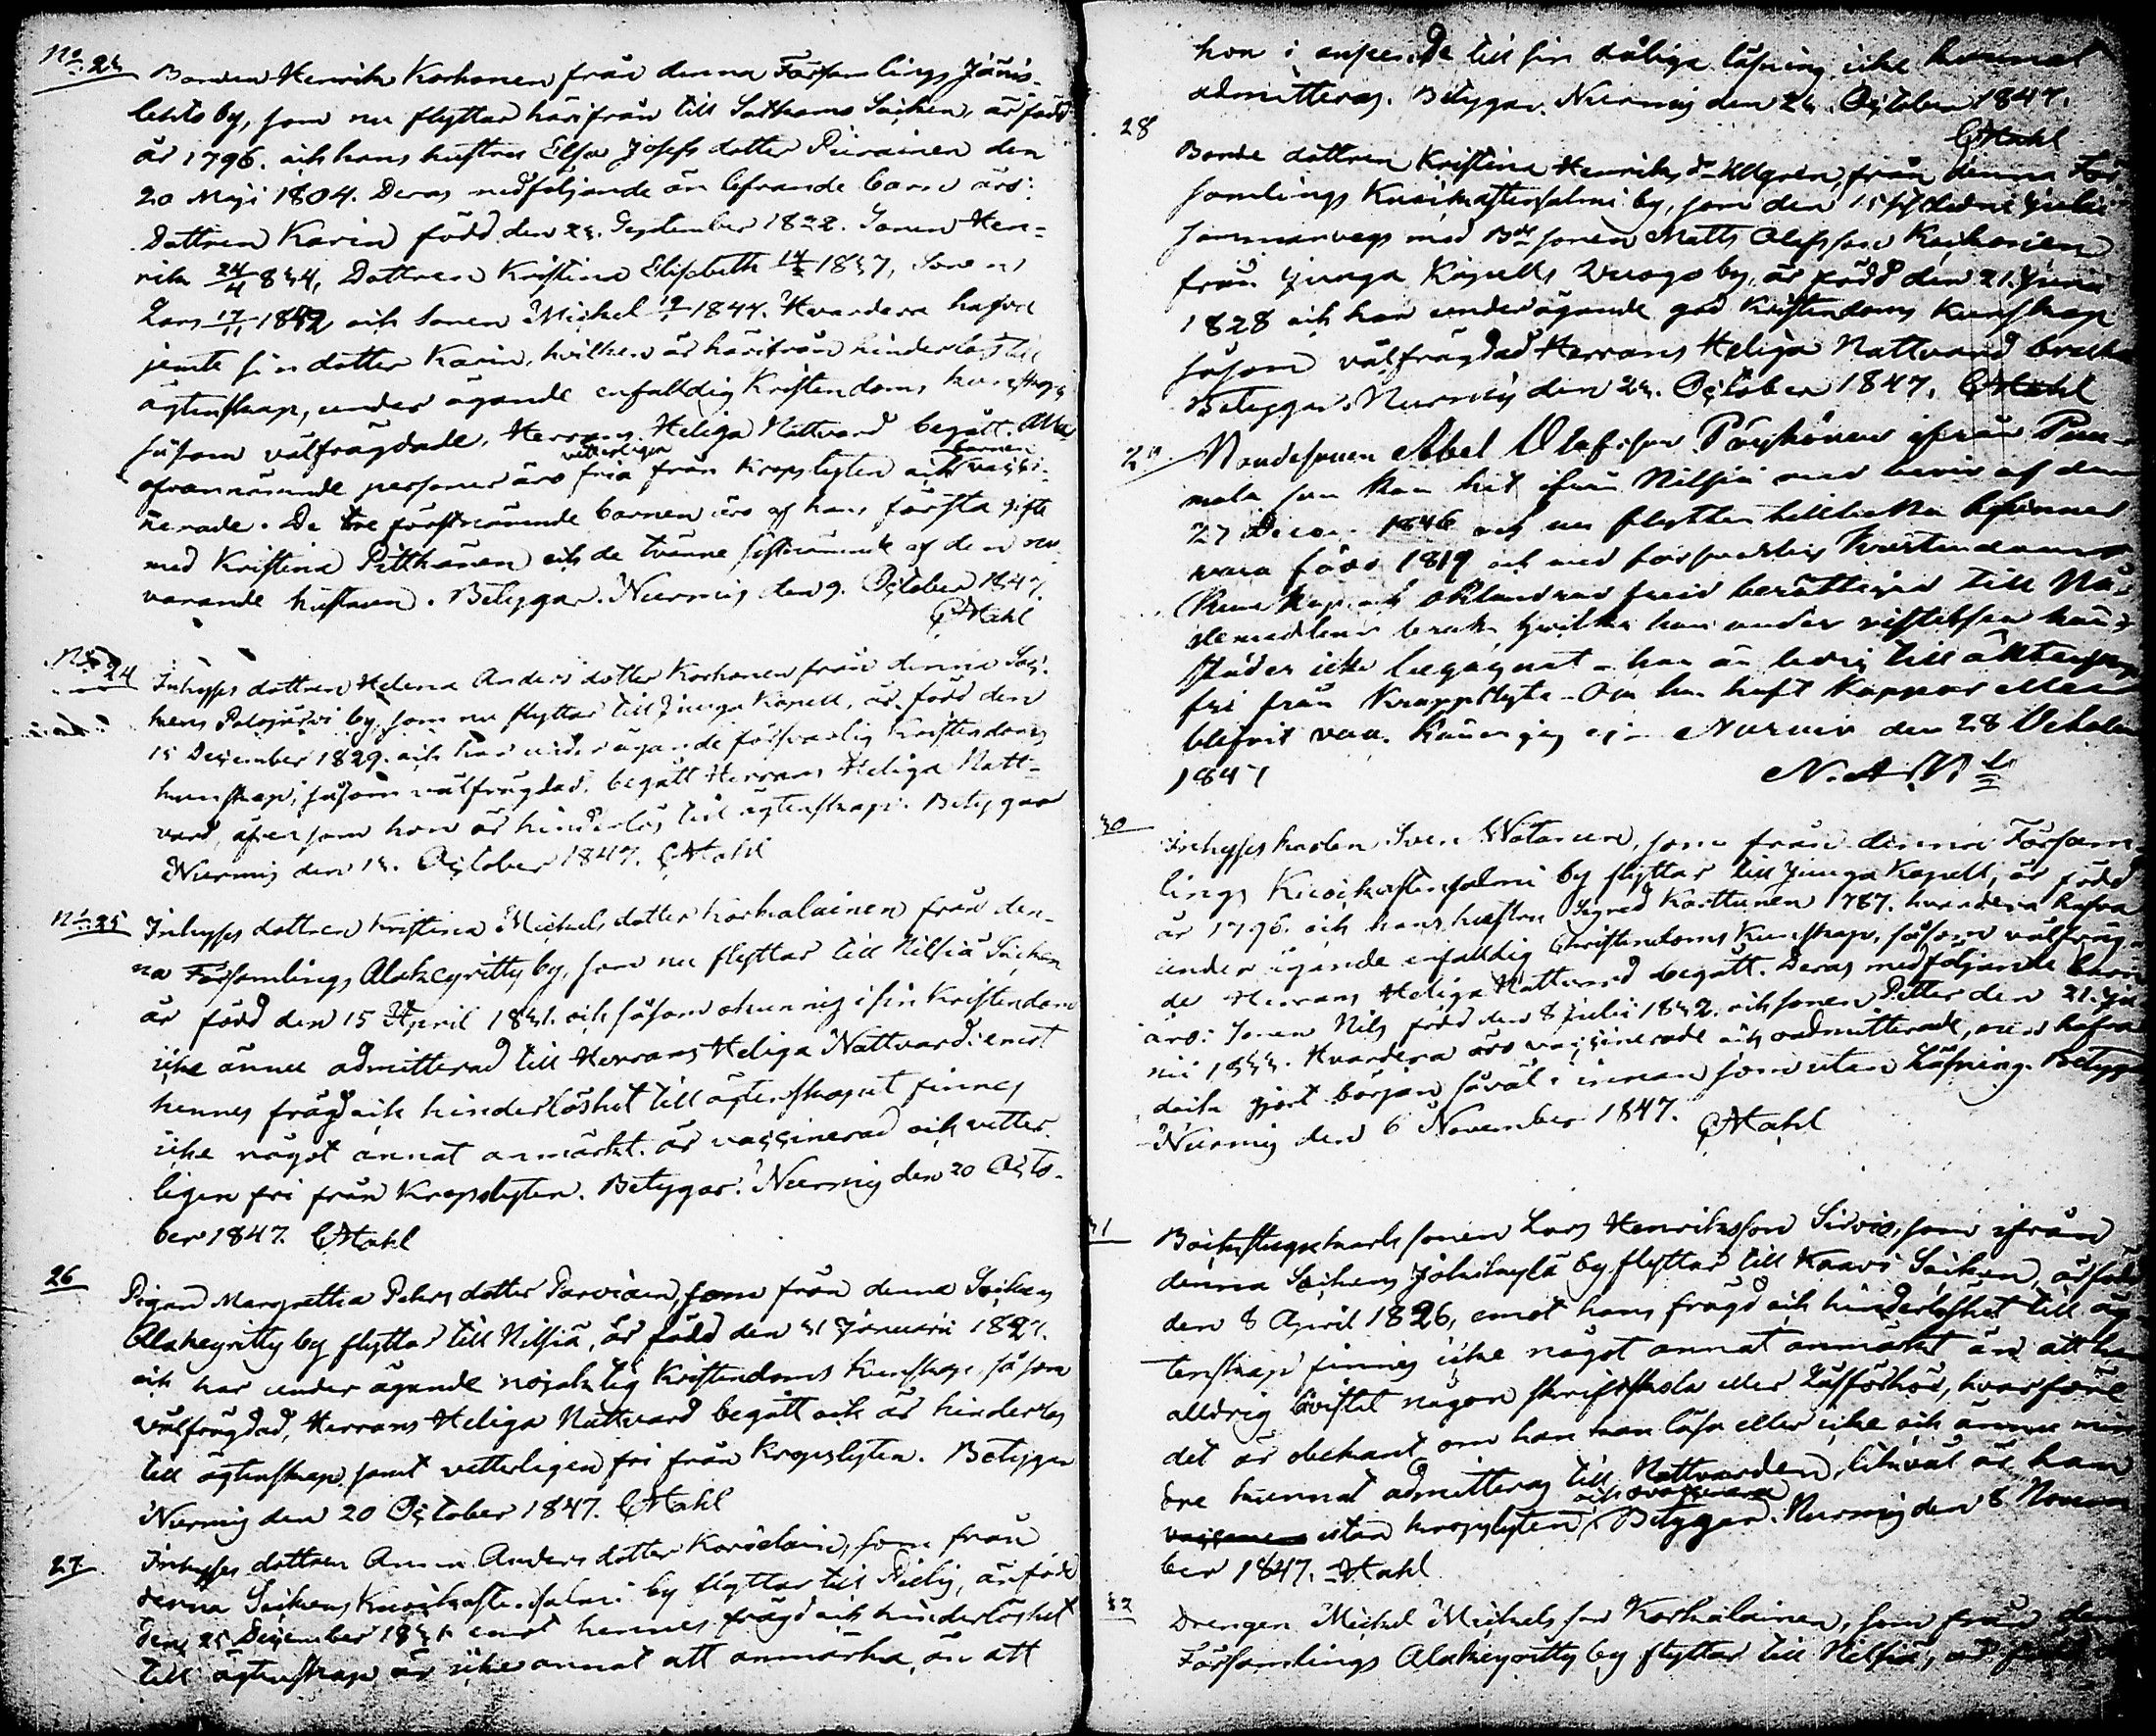 No 23 Bonden Henrik Korhonen från denna Församlings Jänis-
lehto by, som nu flyttar härifrån till Sotkamo Socken, är född
år 1796. och hans hustru Elsa Josefs dotter Piirainen den
20 Maji 1804. Deras medföljande barn äro:
Dottren Karin född den 23. September 1822. Sonen Hen-
rik 24/4 834, Dottren Kristina Elisabeth 1837, Sonen
Lars 17/11 1842 och Sonen Mickel 1844. Hvardera hafva
jemte sin dotter Karin, hvilken är härifrån hinderlös till
ägtenskap, under ägande enfalldig Kristendoms kunskap
såsom välfrägdade, Herrans Heliga Nattvard begått. Alla
ofvannämnde personer äro vetterligen fria från Kropslyten och barnen vacci-
nerade. De tre förstnämnde barnen äro af hans första gifte
med Kristina Pitkänen och de tvänne sistnämnde af den nu
varande hustrun. Betygar. Nurmis den 9. October 1847.
CStahl
No 24 Inhyses dottren Helena Anders dotter Korhonen från denna Soc-
kens Palojärvi by, som nu flyttar till Jiunga Kapell, är född den
15 December 1829. och har under ägande försvarlig Kristendoms
kunskap, såsom välfrägdad, begått Herrans Heliga Natt-
vard, äfvensom hon är hinderlös till ägtenskap. Betygar
Nurmis den 13. October 1847. CStahl
No 25 Inhyses dottren Kristina Michels dotter Korkalainen från den-
na Församlings Alakeyritty by, som nu flyttar till Nilsiä Socken
är född den 15 April 1831. och såsom okunnig i sin Kristendom
icke ännu admitterad till Herrans Heliga Nattvard: emot
hennes frägd och hinderlöshet till ägtenskapet finnes
icke något annat anmärkt. är vaccinerad och vetter-
ligen fri från Kropslyten. Betygar. Nurmis den 20 Octo-
ber 1847. CStahl
26 Pigan Margretha Pehrs dotter Parviain, som från denna Sockens
Alakeyritty by flyttar till Nilsiä, är född den 31 Januarii 1827.
och har under ägande nöjaktig Kristendoms kunskap såsom
välfrägdad, Herrans Heliga Nattvard begått och är hinderlös
till ägtenskap samt vetterligen fri från Kropslyten. Betygar
Nurmis den 20 October 1847. CStahl
27 Inhyses dottren Anna Anders dotter Karvelain, som från
denna Sockens Kuoikastensalmi by flyttar till Pielis, är född
den 25 December 1831 emot hennes frägd och hinderlöshet
till ägtenskap är icke annat att anmärka, än att
hon i anseende till sin dåliga läsning icke kunnat
admitteras. Betygar. Nurmis den 23. October 1847.
CStahl
28 Bonde dottren Kristina Henriks dr från denna För-
samlings Kuoikastensalmi by, som den 15
sammanvegs med Bde sonen Matts Olofsson Korhonen
från Jiunga Kapells by, är född den 21. Junii
1828 och har under ägande god Kristendoms kunskap
såsom välfrägdad Herrans Heliga Nattvard brukat
Betygar. Nurmis den 23. October 1847. CStahl
29 Bondesonen Abel Olofsson Pöyhönen ifrån
som kom hit ifrån Nilsiä med bevis af den
27 1846 och nu flyttar tillbaka
vara född 1819 och med försvarlig Kristendoms
Kunskap och oklandrad frejd berättigad till Nå-
demedlens bruk, hvilka han under vistelsen här-
städes icke begagnat - han är ledig till äktenskap
fri från Kroppslyte - Om han haft Koppor eller
blifvit vacc. känner jag ej - Nurmis den 28 October
1847
30 Inhyses karlen Sven Watanen, som från denna Försam-
lings Kuoikastensalmi by flyttar till Jiunga Kapell, är född
år 1796. och hans hustru Sigred Karttunen 1787. hvardera hafva
under ägande enfalldig Christendoms Kunskap, såsom välfräg-
de Herrans Heliga Nattvard begått. Deras medföljande barn
äro: Sonen Nils född den 8 Julii 1832. och sonen Petter den 21. Ju-
nii 1833. Hvardera äro vaccinerade och oadmitterade, men hafva
dock gjort början såväl i innan som utan Läsning. Betygar
Nurmis den 6 November 1847. CStahl
31 Backstugukarls sonen Lars Henriksson Sirvio, som ifrån
denna Sockens Jokikylä by flyttar till Kaavi Socken, är född
den 8 April 1826, emot hans frägd och hinderlöshet till äg-
tenskap finnes icke något annat anmärkt än att han
alldrig bevistat någon skriftskola eller Läsförhör, hvarföre
det är obekant om han kan läsa eller icke och ännu min
dre kunnat admitteras till Nattvarden, likväl är han
utan kropslyten och ovaccinerad. Betygar. Nurmis den 8 Novem
ber 1847. Stahl
32 Drengen Mickel Michels son Korkalainen, som från denna
Församlings Alakeyritty by flyttar till Nilsiä, är född